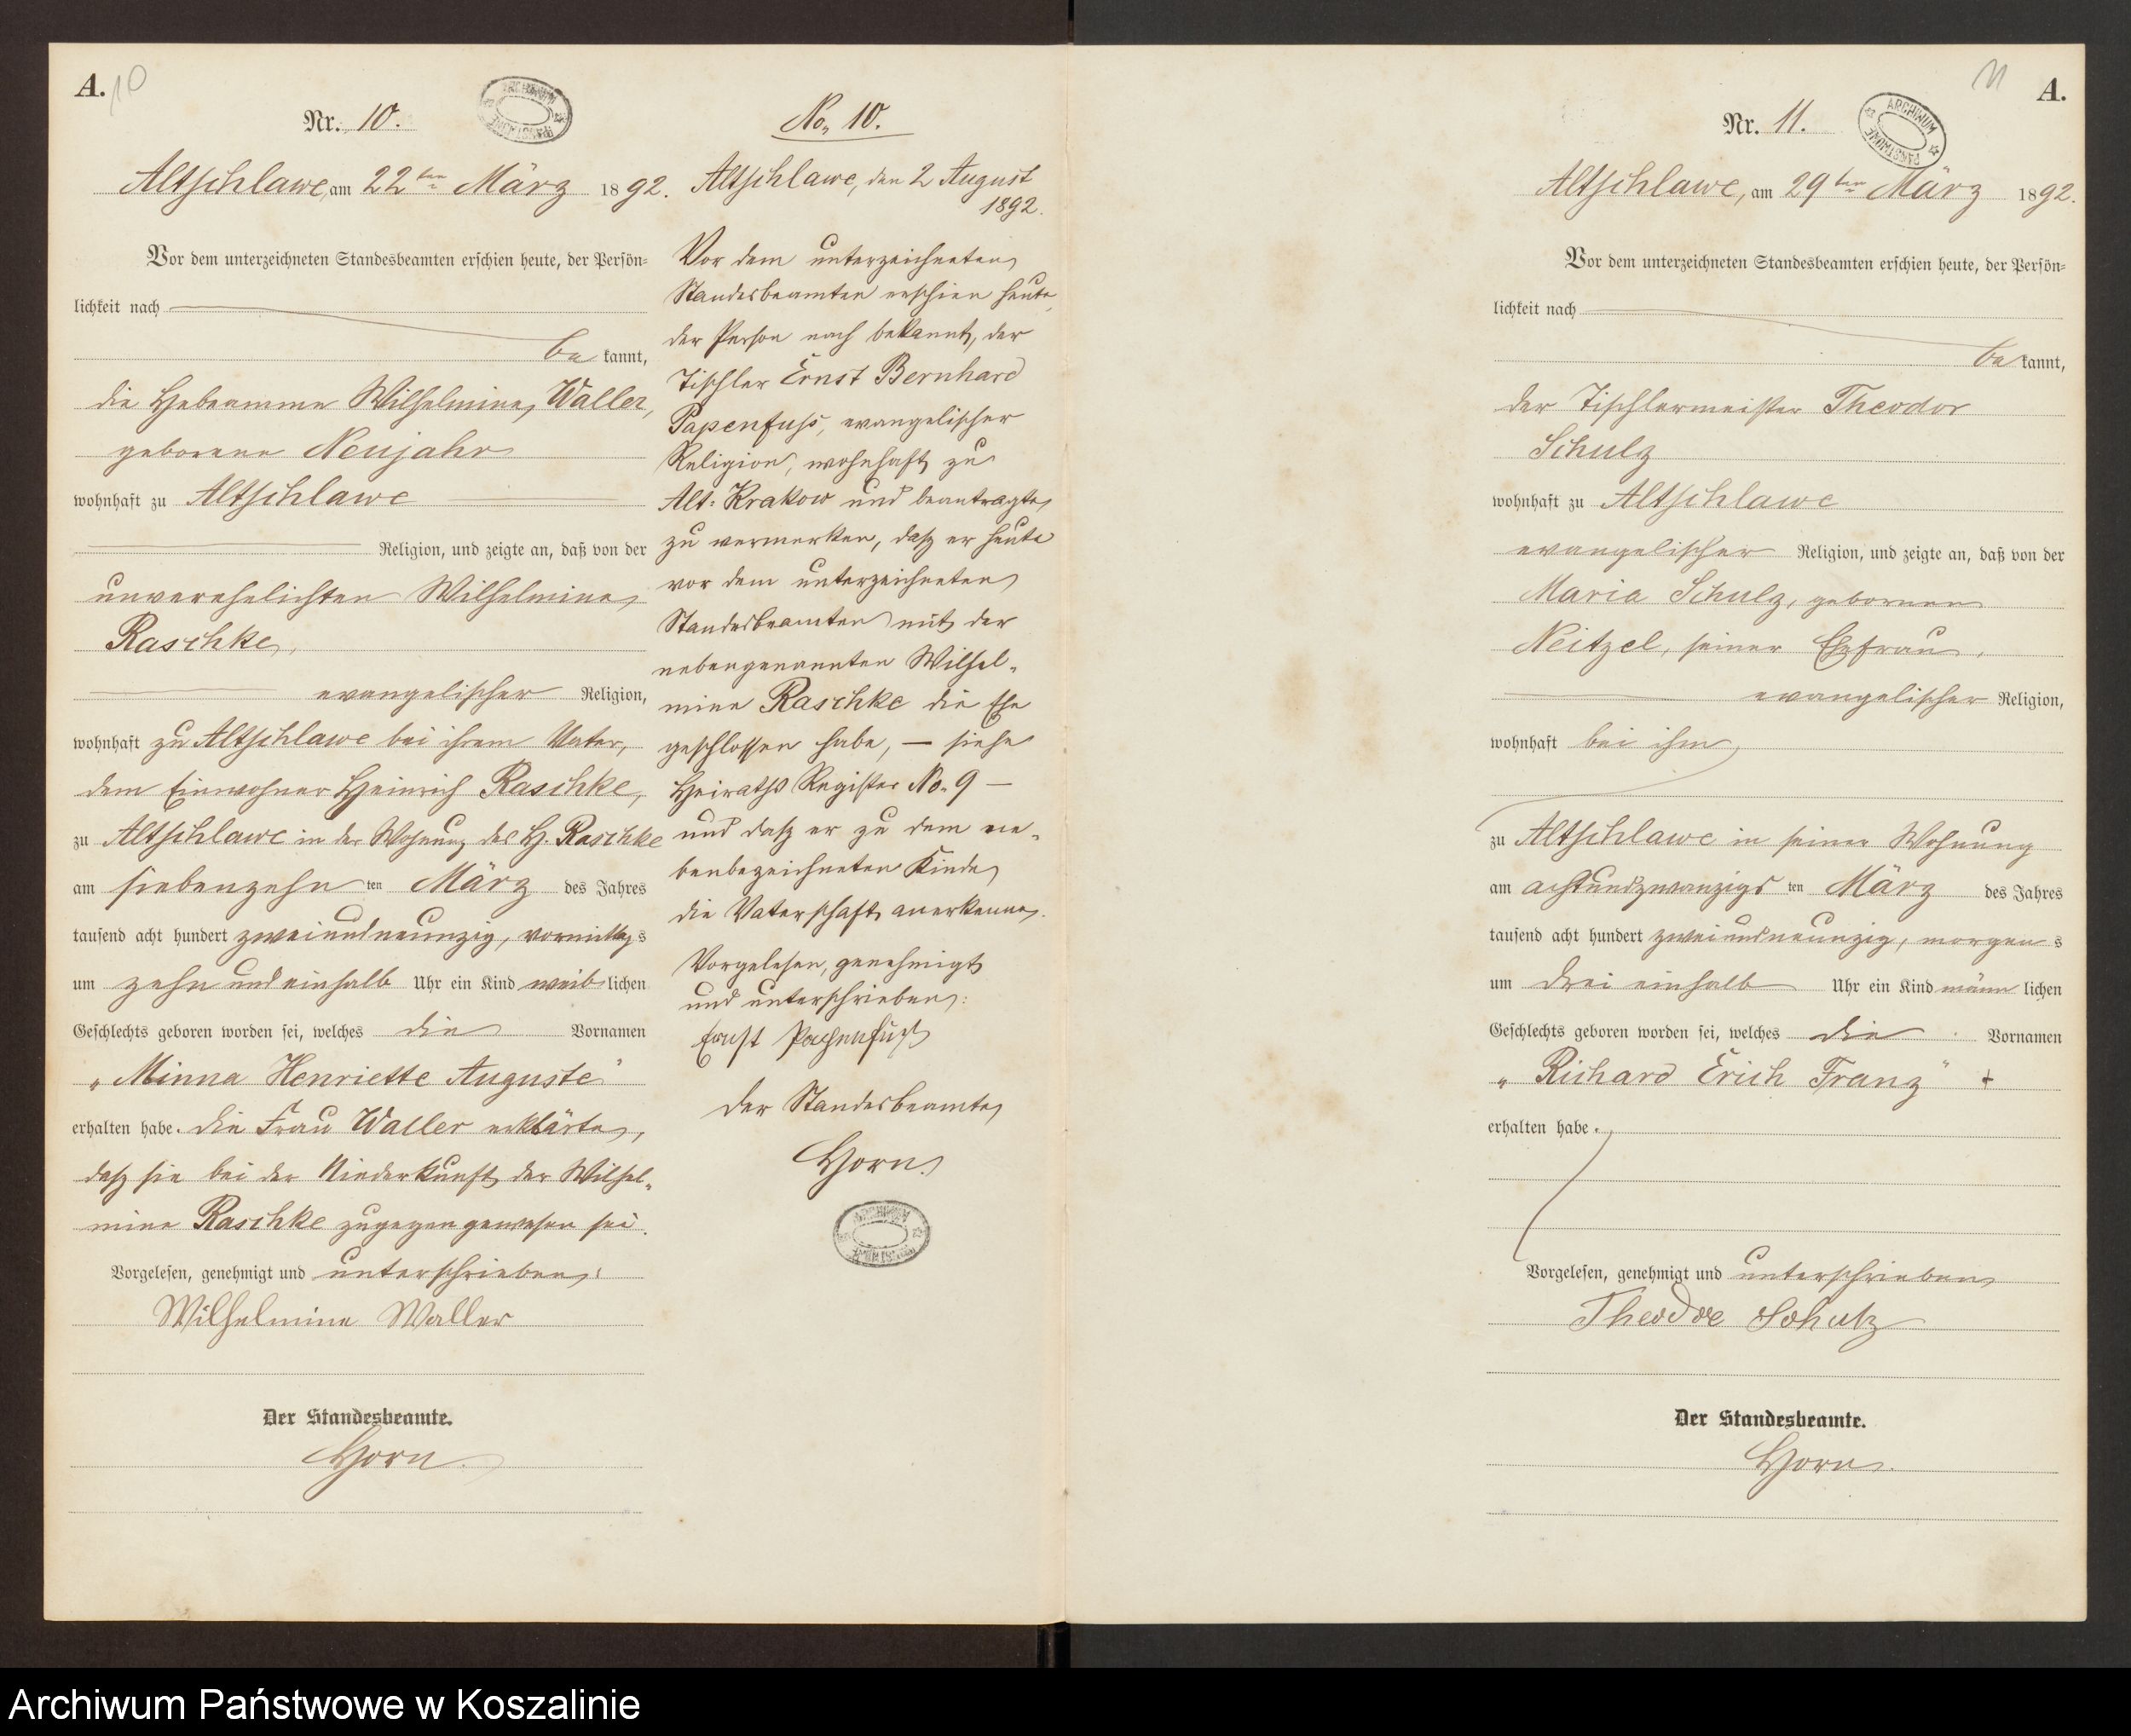 A.
10
Nr. 10.
ARCHIWUM PAŃSTWOWE
Altschlawe, am 22ten März 1892.
Vor dem unterzeichneten Standesbeamten erschien heute, der Persön=
lichkeit nach
be kannt,
die Hebeamme Wilhelmine Waller,
geborene Neujahr
wohnhaft zu Altschlawe
Religion, und zeigte an, daß von der
unverehelichten Wilhelmine
Raschke,
evangelischer Religion,
wohnhaft zu Altschlawe bei ihrem Vater,
dem Einwohner Heinrich Raschke,
zu Altschlawe in der Wohnung des H. Raschke
am siebenzehn ten März des Jahres
tausend acht hundert zweiundneunzig, vormittags
um zehn und einhalb Uhr ein Kind weib lichen
Geschlechts geboren worden sei, welches die Vornamen
„Minna Henriette Auguste“
erhalten habe. Die Frau Waller erklärte,
daß sie bei der Niederkunft der Wilhel-
mine Raschke zugegen gewesen sei.
Vorgelesen, genehmigt und unterschrieben:
Wilhelmine Waller
Der Standesbeamte.
Horn.
No. 10.
Altschlawe, den 2 August
1892.
Vor dem unterzeichneten
Standesbeamten erschien heute,
der Person nach bekannt, der
Tischler Ernst Bernhard
Papenfuss, evangelischer
Religion, wohnhaft zu
Alt-Krakow und beantragte
zu vermerken, daß er heute
vor dem unterzeichneten
Standesbeamten mit der
nebengenannten Wilhel-
mine Raschke die Ehe
geschlossen habe, — siehe
Heiraths Register No. 9 —
und daß er zu dem ne-
benbezeichneten Kinde
die Vaterschaft anerkenne.
Vorgelesen, genehmigt
und unterschrieben:
Ernst Papenfuß
Der Standesbeamte
Horn.
ARCHIWUM PAŃSTWOWE
11
A.
Nr. 11.
ARCHIWUM PAŃSTWOWE
Altschlawe, am 29ten März 1892.
Vor dem unterzeichneten Standesbeamten erschien heute, der Persön=
lichkeit nach
be kannt,
der Tischlermeister Theodor
Schulz
wohnhaft zu Altschlawe
evangelischer Religion, und zeigte an, daß von der
Maria Schulz, geborenen
Neitzel, seiner Ehefrau,
evangelischer Religion,
wohnhaft bei ihm
zu Altschlawe in seiner Wohnung
am achtundzwanzigs ten März des Jahres
tausend acht hundert zweiundneunzig, morgens
um drei einhalb Uhr ein Kind männ lichen
Geschlechts geboren worden sei, welches die Vornamen
„Richard Erich Franz“ +
erhalten habe.
Vorgelesen, genehmigt und unterschrieben
Theodor Schulz
Der Standesbeamte.
Horn.
Archiwum Państwowe w Koszalinie